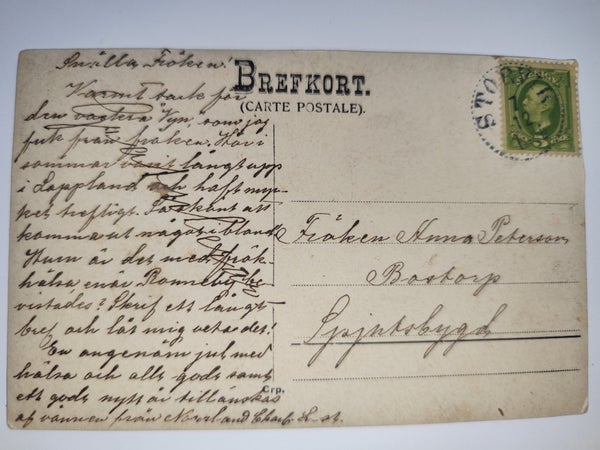 Snälla Fröken!
Varmt tack för
den vackra Vyn, som jag
fick från fröken. Har i
sommar varit långt upp
i Lappland och haft myc-
ket trefligt. Så skönt att
komma ut något ibland
Hum är det med frök
hälsa enär Ronneby be-
vistades? Skrif ett långt
bref och låt mig veta det!
En angenäm jul med
hälsa och allt godt samt
ett godt nytt år tillönskas
af vännen från Norrland
BREFKORT.
(CARTE POSTALE).
STOR
12
5
Fröken Anna Peterson
Bostorp
Spjutsbygd
Crp.